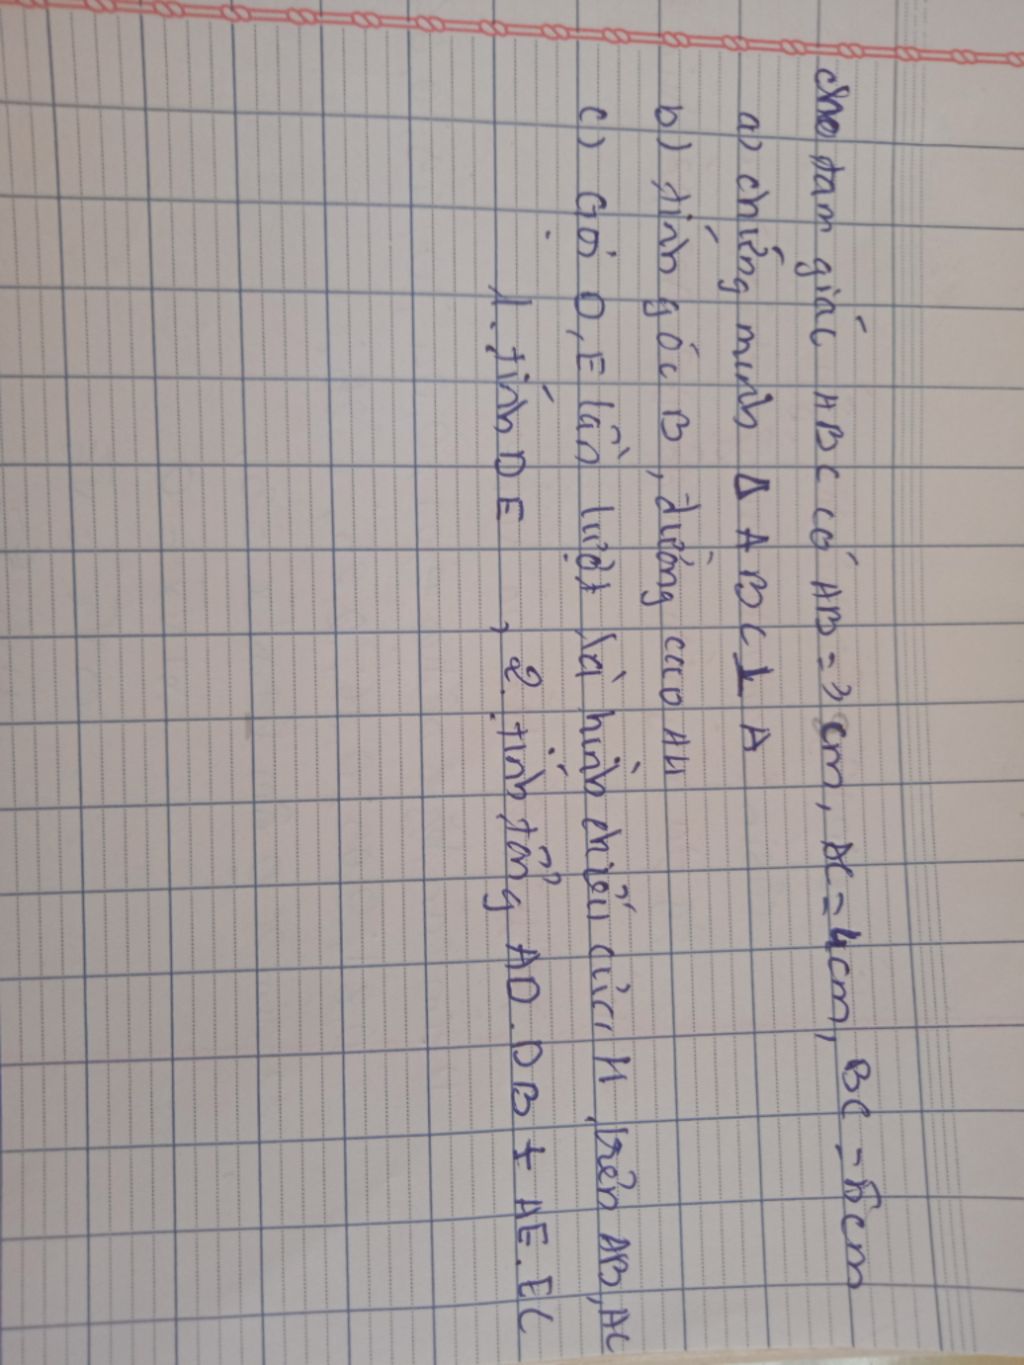 cho tam giác ABC có AB = 3cm, AC = 4cm, BC = 5cm
a) chứng minh Δ ABC ⊥ A
b) tính góc B, đường cao AH
c) Gọi D, E lần lượt là hình chiếu của H trên AB, AC
1. tính DE , 2. tính tổng AD.DB + AE.EC